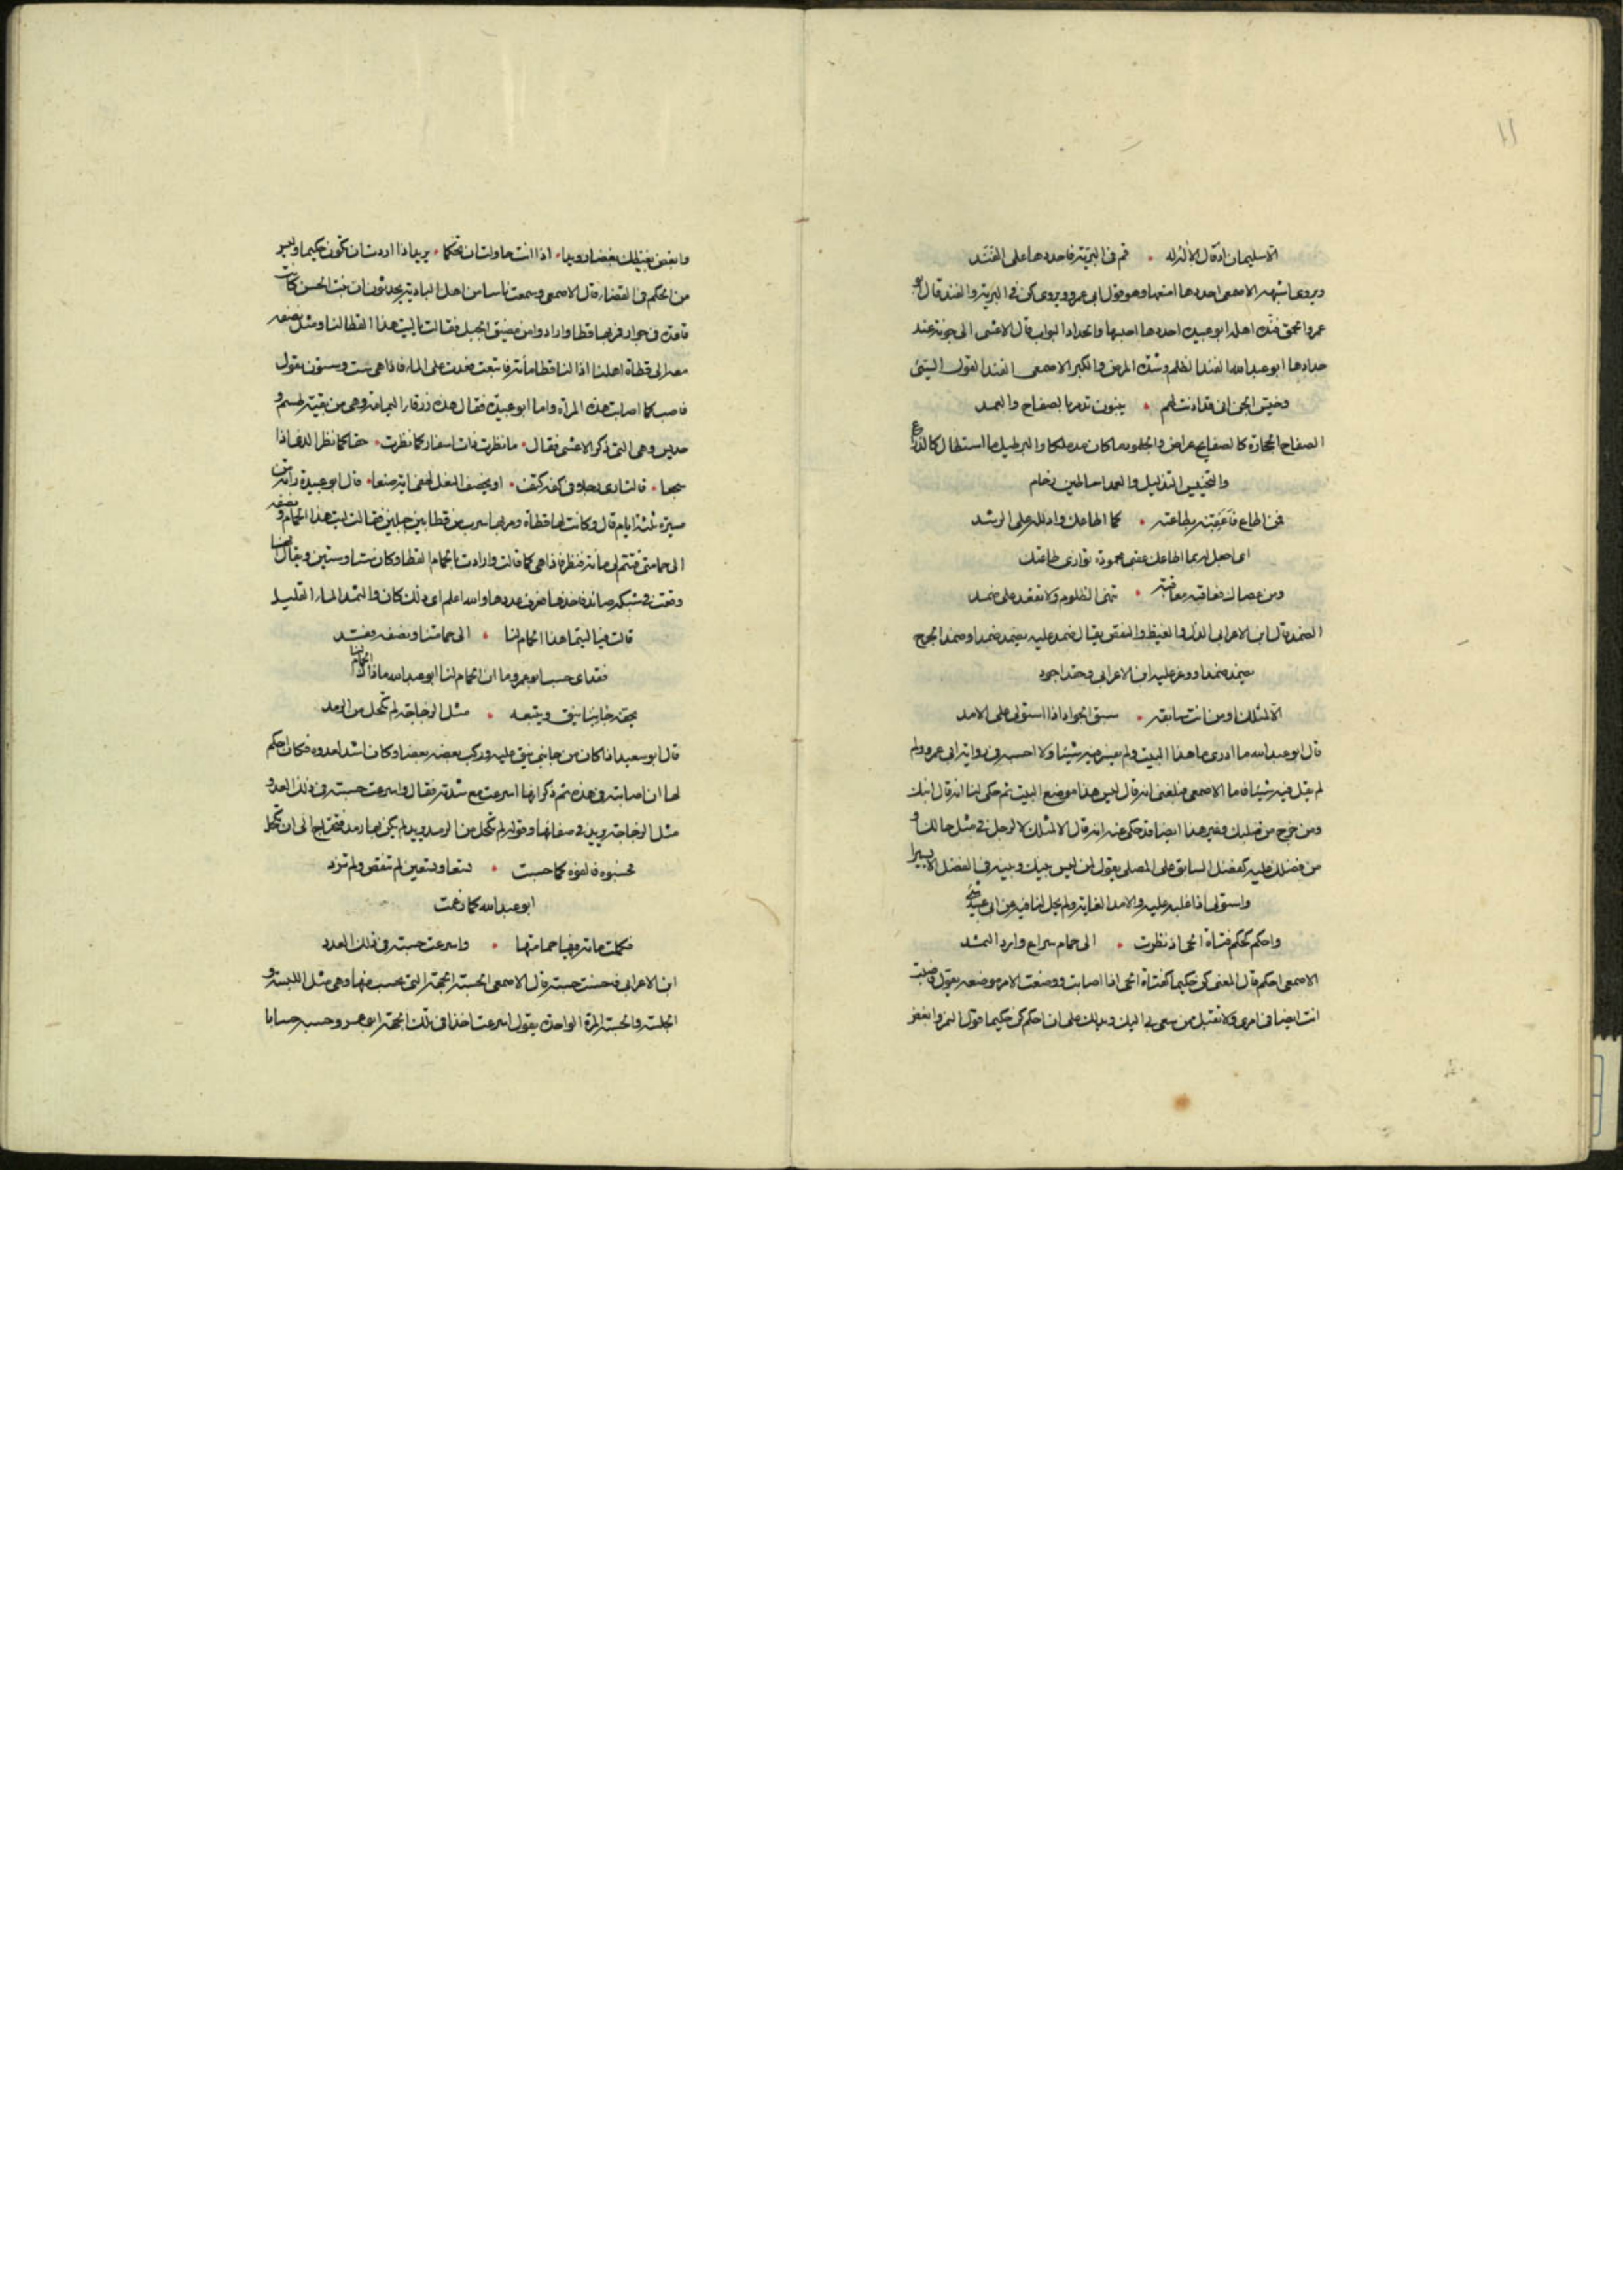 ١١
الا سليمان اذ قال الاله له • قم في البرية فاحددها على الفند
ويروى اشبهه الاصمعي احددها امنعها وهو قول ابي عمرو ويروى كن في البرية والفند قال ابو
عمرو الحمق فنده اهله ابو عبيدة احددها احبسها والحداد البواب قال الاعشى الى جونة عند
حدادها ابو عبد الله الفند الظلم وشدة المرض والكبر الاصمعي الفند القول السيئ
وخيس الجن اني قد اذنت لهم • يبنون تدمر بالصفاح والعمد
الصفاح الحجارة كالصفايح عراض والجلود ما كان مدملكا والبرطيل ما استطال كالذراع
والتخييس التذليل والعمد اساطين رخام
فمن اطاع فاعقبه بطاعته • كما اطاعك وادلله على الرشد
اي اجعل له بما اطاعك عقبى محمودة توازى طاعتك
ومن عصاك فعاقبه معاقبة • تنهى الظلوم ولا تقعد على ضمد
الضمد قال ابن الاعرابي الذل والغيظ والنقص يقال ضمد عليه يضمد ضمدا وضمد الجرح
يضمد ضمدا ووغر عليه ابن الاعرابي وحقد اجود
الا لمثلك او من انت سابقه • سبق الجواد اذا استولى على الامد
قال ابو عبد الله ما ادري ما هذا البيت ولم يفسر فيه شيئا ولا احسبه في رواية ابي عمرو ولم
لم يقل فيه شيئا فاما الاصمعي فبلغني انه قال ليس هذا موضع البيت ثم حكى لنا انه قال ابنك
ومن خرج من صلبك وغير هذا ايضا قد حكى عنه انه قال الا لمثلك الا لرجل في مثل حالك او
من فضلك عليه كفضل السابق على المصلي يقول لمن ليس بينك وبينه في الفضل الا يسيرا
واستولى اذا غلب عليه والامد الغاية ولم يحل لنا فيه عن ابي عبيدة شئ
واحكم كحكم فتاة الحي اذ نظرت • الى حمام سراع وارد الثمد
الاصمعي احكم قال المعنى كن حكيما كفتاة الحي اذا اصابت ووضعت الامر موضعه يقول فاصبت
انت ايضا في امري ولا تقبل ممن سعى بي اليك ويدلك على ان احكم كن حكيما قول النمر وابغض
وابغض بغيظك بغضا رويدا • اذا انت حاولت ان تحكما • يريد اذا اردت ان تكون حكيما وليس
من الحكم في القضاء قال الاصمعي وسمعت ناسا من اهل البادية يحدثون ان بنت الخس كانت
قاعدة في جوار فمر بها قطا وارد وا من مضيق الجبل فقالت يا ليت هذا القطا لنا ومثل نصفه
معه الى قطاة اهلنا اذا لنا قطا مائة فاتبعت فعدت على الماء فاذا هي ست وستون يقول
فاصب كما اصابت هذه المرأة واما ابو عبيدة فقال هذه زرقاء اليمامة وهي من بقية طسم و
جديس وهي التي ذكر الاعشى فقال • ما نظرت ذات اشفار كما نظرت • حقا كما نظر الذئبي اذا
سجعا • قالت ارى رجلا في كفه كتف • او يخصف النعل لهفي اية صنعا • قال ابو عبيدة راته من
مسيرة ثلثة ايام قال وكانت لها قطاة ومر بها سرب من قطا بين جبلين فقالت ليت هذا الحمام و نصفه
الى حمامتي فتتم لي مائة فنظر فاذا هي كما قالت وارادت بالحمام القطا وكان ستا وستين ويقال ايضا
وقعت في شبكة صائد فاخذها فعرف عددها والله اعلم اي ذلك كان والثمد الماء القليل
قالت فيا ليتما هذا الحمام لنا • الى حمامتنا ونصفه فقد
فقد اي حسب ابو عمرو ما ان الحمام لنا ابو عبد الله ماذا الحمام لنا
يحفه جانبا نيق ويتبعه • مثل الزجاجة لم تكحل من الرمد
قال ابو سعيد اذا كان من جانبي نيق عليه وركب بعضه بعضا وكان اشد لعدوه فكان احكم
لها ان اصابته في هذه ثم ذكر انها اسرعت مع شدته فقال واسرعت حسبة في ذلك العدد و
مثل الزجاجة يريد في صفائها وقوله لم تكحل من الرمد يريد لم يكن بها رمد فتحتاج الى ان تكحل
فحسبوه فالفوه كما حسبت • تسعا وتسعين لم تنقص ولم تزد
ابو عبد الله كما زعمت
فكملت مائة فيها حمامتها • واسرعت حسبة في ذلك العدد
ابن الاعرابي فاحسنت حسبة قال الاصمعي الحسبة الجهة التي يحسب منها وهي مثل اللبسة و
الجلسة والحسبة المرة الواحدة يقول اسرعت اخذا في تلك الجهة ابو عمرو حسب حسابا